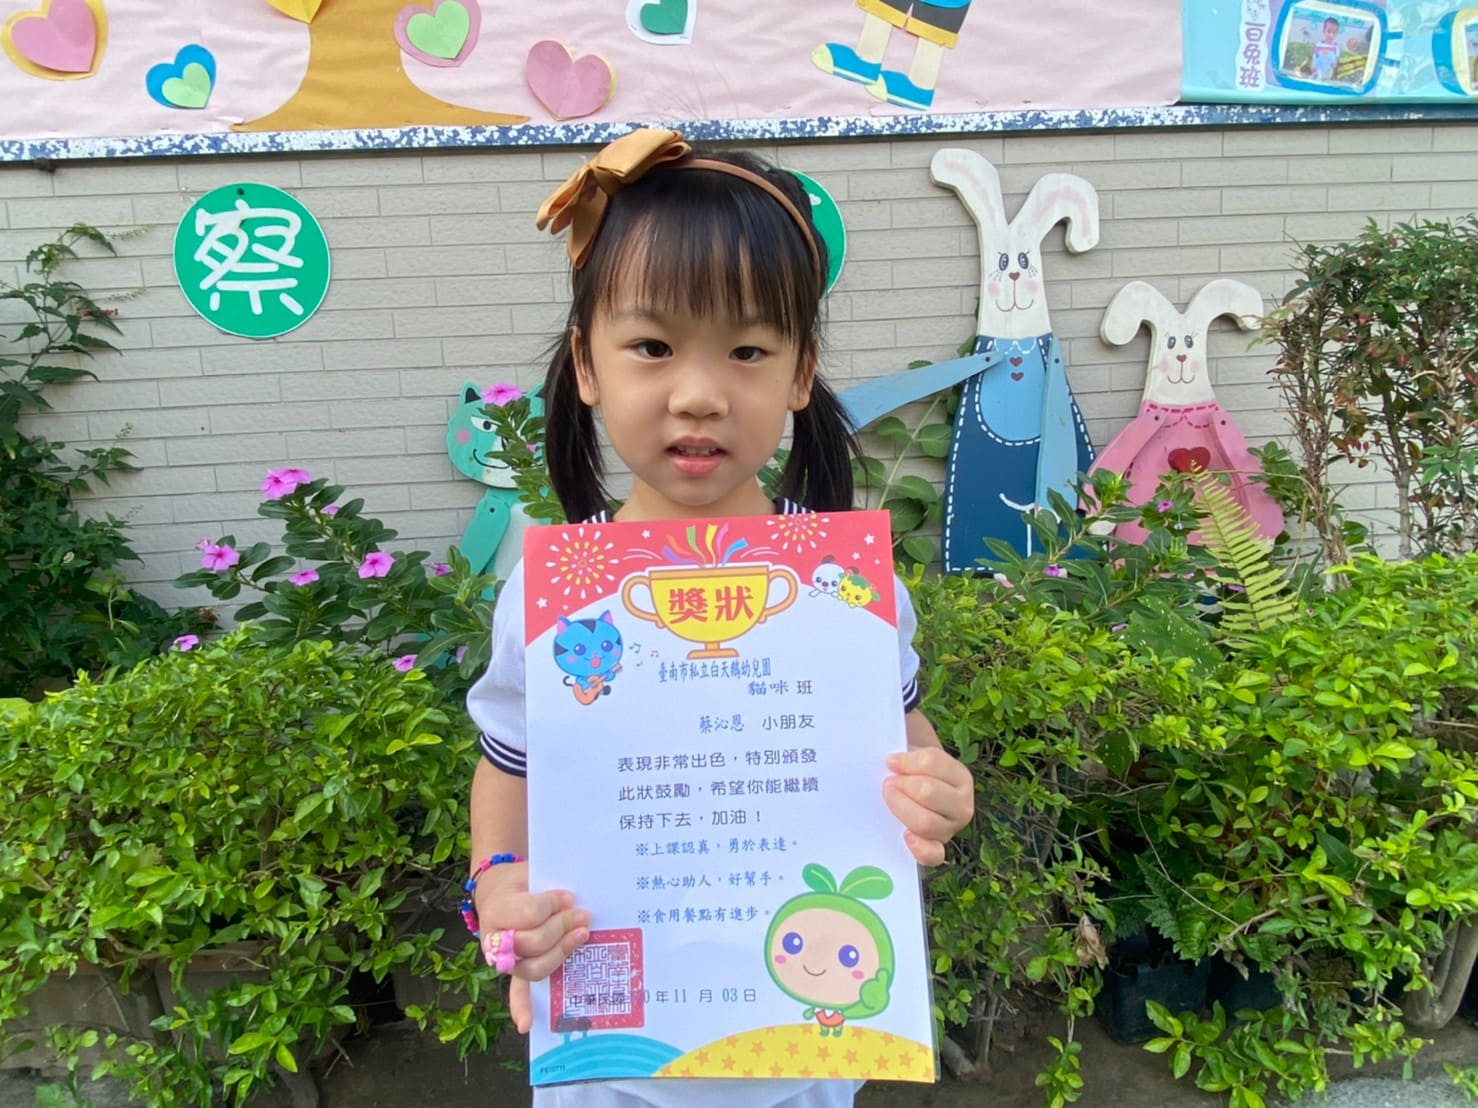 白兔班
察
獎狀
臺南市私立白天鵝幼兒園
貓咪 班
蔡沁恩 小朋友
表現非常出色，特別頒發
此狀鼓勵，希望你能繼續
保持下去，加油！
※上課認真，勇於表達。
※熱心助人，好幫手。
※食用餐點有進步。
中華民國 0年11月03日